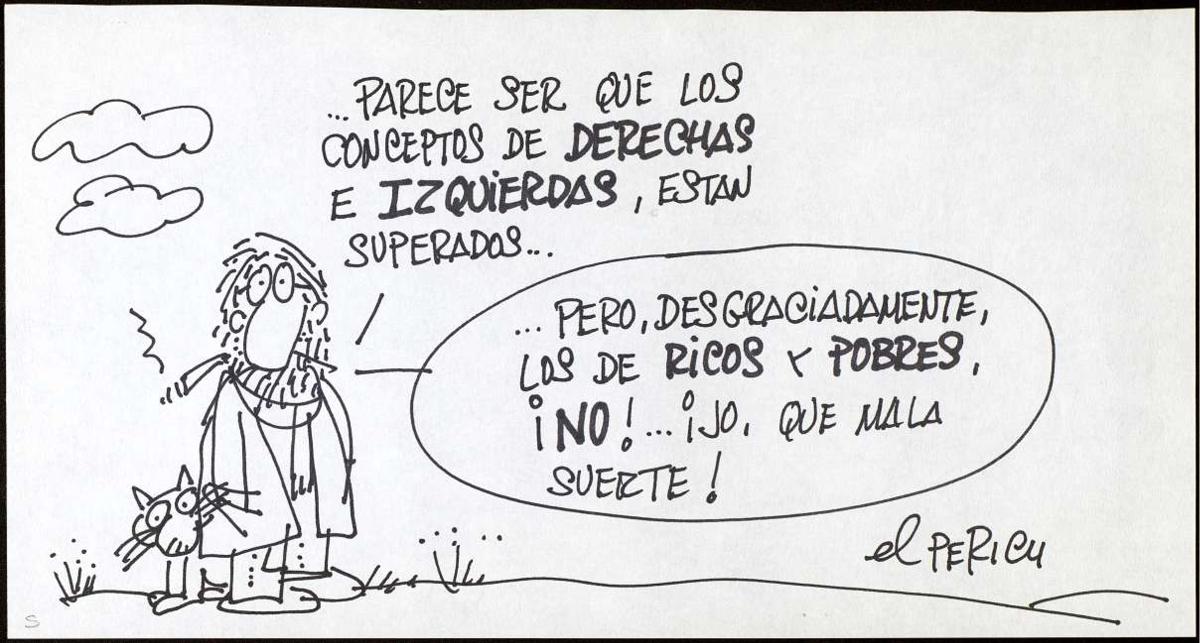 ...PARECE SER QUE LOS
CONCEPTOS DE DERECHAS
E IZQUIERDAS, ESTAN
SUPERADOS...
...PERO, DESGRACIADAMENTE,
LOS DE RICOS Y POBRES,
¡NO!...¡JO, QUE MALA
SUERTE!
el PERICH
S